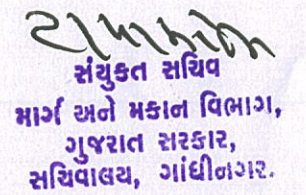 સંયુક્ત સચિવ
માર્ગ અને મકાન વિભાગ,
ગુજરાત સરકાર,
સચિવાલય, ગાંધીનગર.